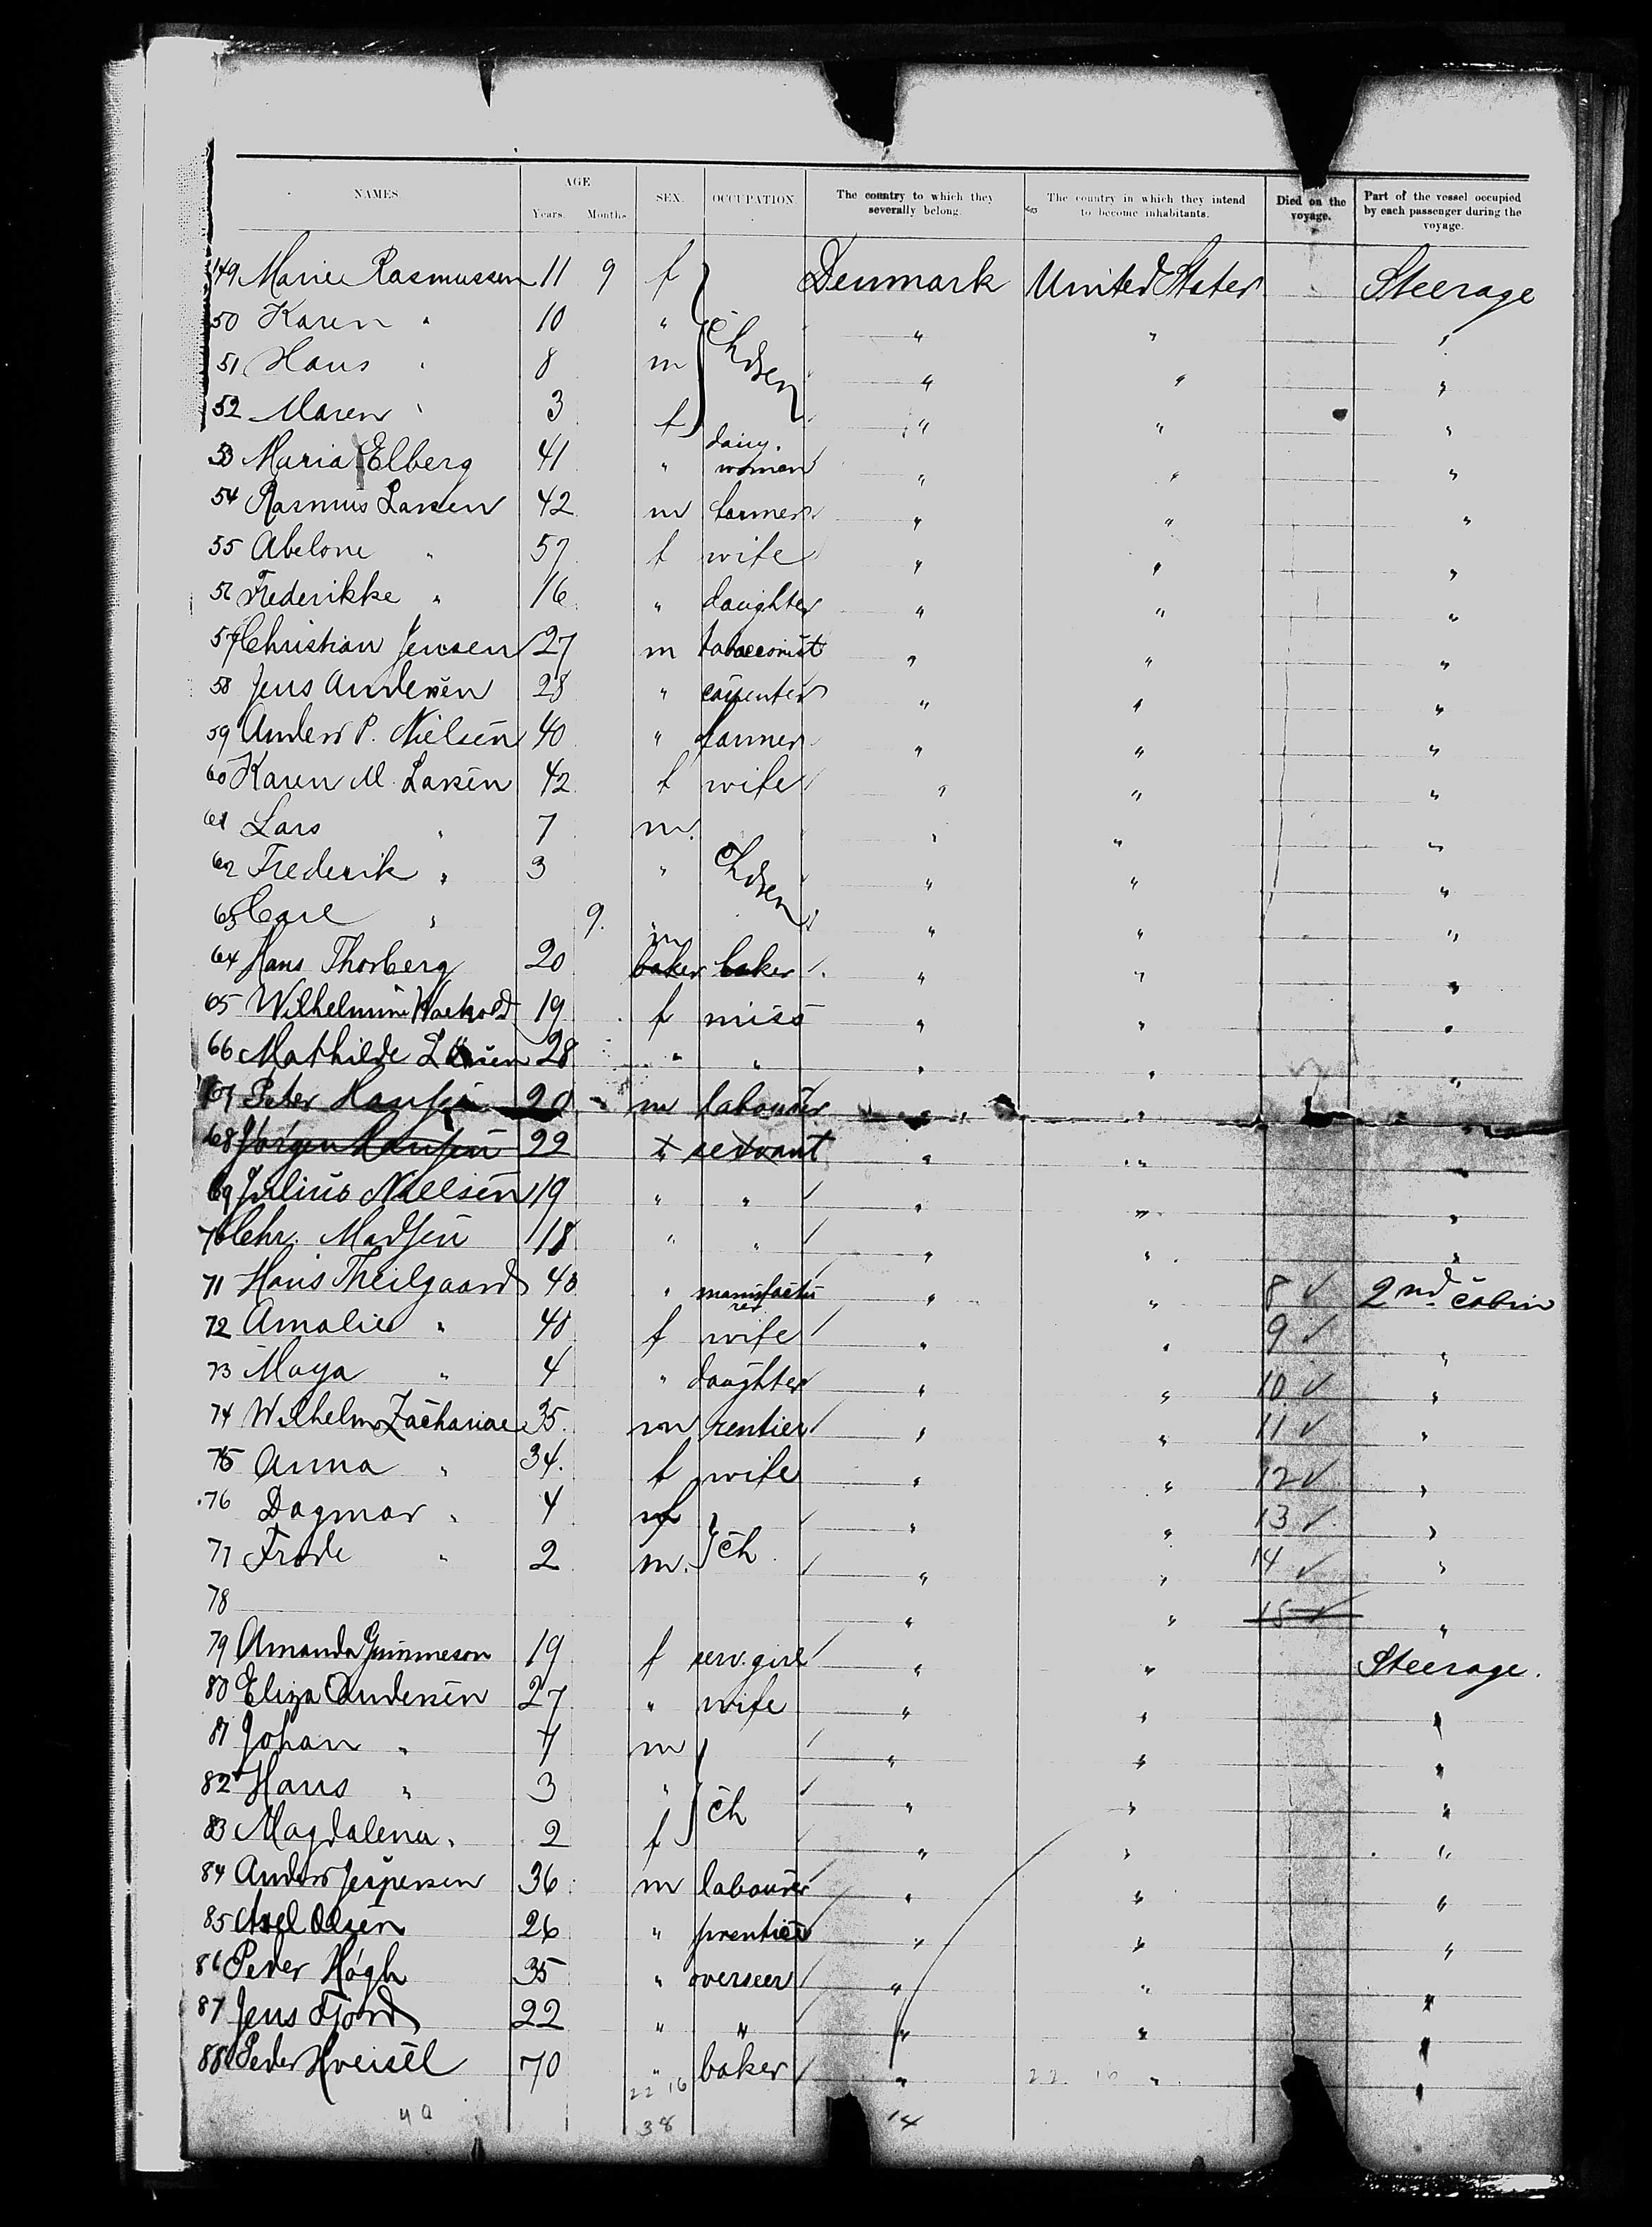 NAMES AGE SEX. OCCUPATION The country to which they severally belong. The country in which they intend to become inhabitants. Died on the voyage. Part of the vessel occupied by each passenger during the voyage.
Years. Months
149 Marie Rasmussen 11 9 f Denmark United States Steerage
50 Karen " 10 " " " "
51 Hans " 8 m Chdren " " "
52 Maren " 3 f " " "
53 Maria Elberg 41 " dairy. woman " " "
54 Rasmus Larsen 42 m farmer " " "
55 Abelone " 57 f wife " " "
56 Frederikke " 16 " daughter " " "
57 Christian Jensen 27 m tobacconist " " "
58 Jens Andersen 28 " carpenter " " "
59 Anders P. Nielsen 40 " farmer " " "
60 Karen M. Larsen 42 f wife " " "
61 Lars " 7 m. " " "
62 Frederik " 3 " Chdren " " "
63 Carl " 9. " " " "
64 Hans Thorberg 20 m baker baker " " "
65 Wilhelmine 19 f miss " " "
66 Mathilde 28 " " " " "
67 Peter Hansen 20 m labourer " " "
68 Jörgen Hansen 22 servant " "
69 Julius Nielsen 19 " " " " "
70 Chr. Madsen 18 " " " " "
71 Hans Theilgaard 40 " manufacturer " " 8 ✓ 2nd cabin
72 Amalie " 40 f wife " " 9 ✓ "
73 Maya " 4 " daughter " " 10 ✓ "
74 Wilhelm Zachariae 35. m rentier " " 11 ✓ "
75 Anna " 34. f wife " " 12 ✓ "
76 Dagmar " 4 f " " 13 ✓ "
77 Frode " 2 m. ch " " 14 ✓ "
78 " " 15 ✓ "
79 Amanda Gummeson 19 f serv. girl " " Steerage.
80 Eliza Andersen 27 " wife " " "
81 Johan " 7 m " " "
82 Hans " 3 " ch " " "
83 Magdalena " 2 f " " "
84 Anders Jespersen 36 m labourer " " "
85 Axel Olsen 26 " prentice " " "
86 Peder Högh 35 " overseer " " "
87 Jens Fjord 22 " " " " "
88 Peder 70 " baker " " "
22 16 22 16
38 14